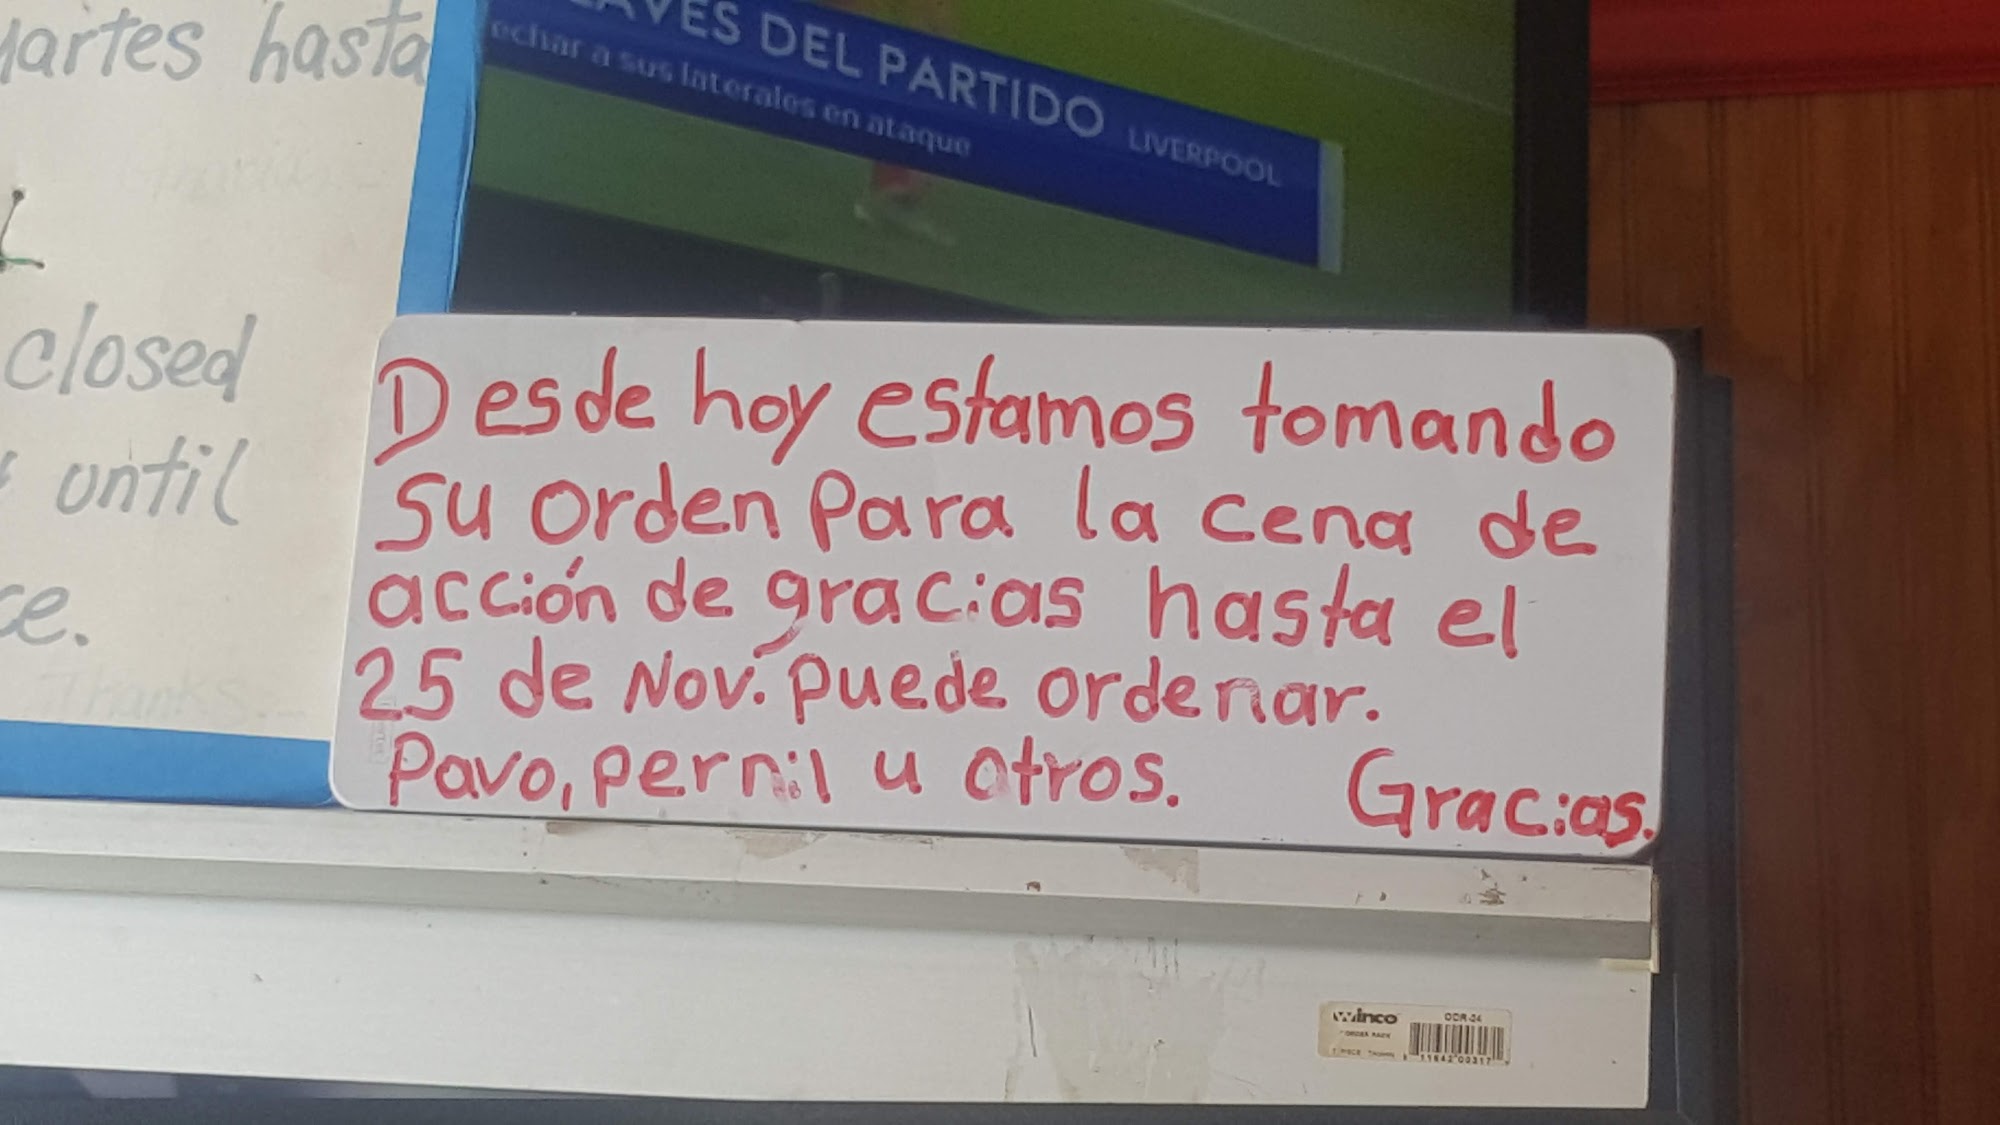 hasta
closed
until
Thanks.
DEL PARTIDO LIVERPOOL
a sus laterales en ataque
Desde hoy estamos tomando
su orden para la cena de
acción de gracias hasta el
25 de Nov. puede ordenar.
Pavo, pernil u otros. Gracias.
winco ODR-24